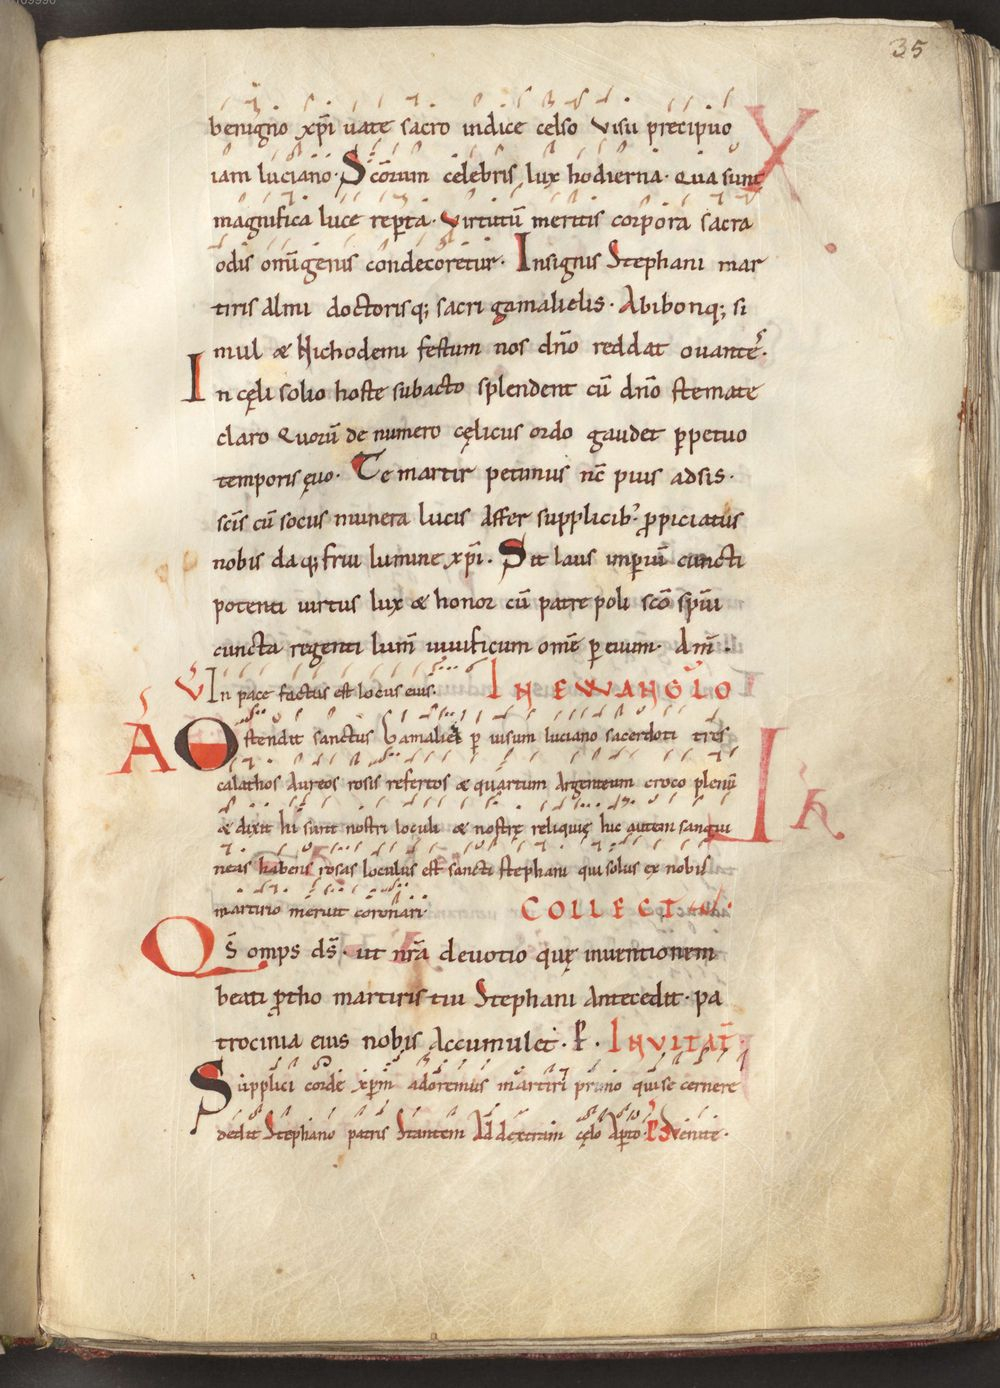 35
benigno xp̄i uate sacro indice celso visu precipuo
iam luciano· Sc̄orum celebris lux hodierna· Qua sunt
magnifica luce rep̱ta· Virtutū meritis corpora sacra
odis om̄igenis condecoretur· Insignis Stephani mar
tiris almi doctorisq; sacri gamalielis· Abibonq; si
mul & Nichodemi festum nos dn̄o reddat ouantes·
In cęli solio hoste subacto splendent cū dn̄o stemate
claro Quorū de numero cęlicus ordo gaudet p̱petuo
temporis ęuo· Te martir petimus nc̄ pius adsis·
sc̄is cū sociis munera lucis Affer supplicib; ꝓpiciatus
nobis daq; frui lumine xp̄i· Sit laus imp̱iū cuncti
potenti uirtus lux & honor cū patre poli sc̄o sp̄ui
cuncta regenti lum̄ uiuificum om̄e p̱ euum· Am̄·
V In pace factus est locus eius· IN EWANGLO
A Ostendit sanctus Gamaliel p̱ uisum luciano sacerdoti tres
calathos Aureos rosis refertos & quartum Argenteum croco plenū
& dixit hi sunt nostri loculi & nostrę reliquię hic autem sangui
neas habens rosas loculus est sancti stephani qui solus ex nobis
martirio meruit coronari· COLLECT
Qs̄ omps ds̄· ut nr̄a deuotio quę inuentionem
beati ꝓtho martiris tui Stephani Antecedit· pa
trocinia eius nobis Accumulet· P· INVITAT̄·
Supplici corde xp̄m adoremus martiri primo qui se cernere
dedit Stephano patris Stantem Ad dexteram cęlo Ap̱to· Ps Venite·